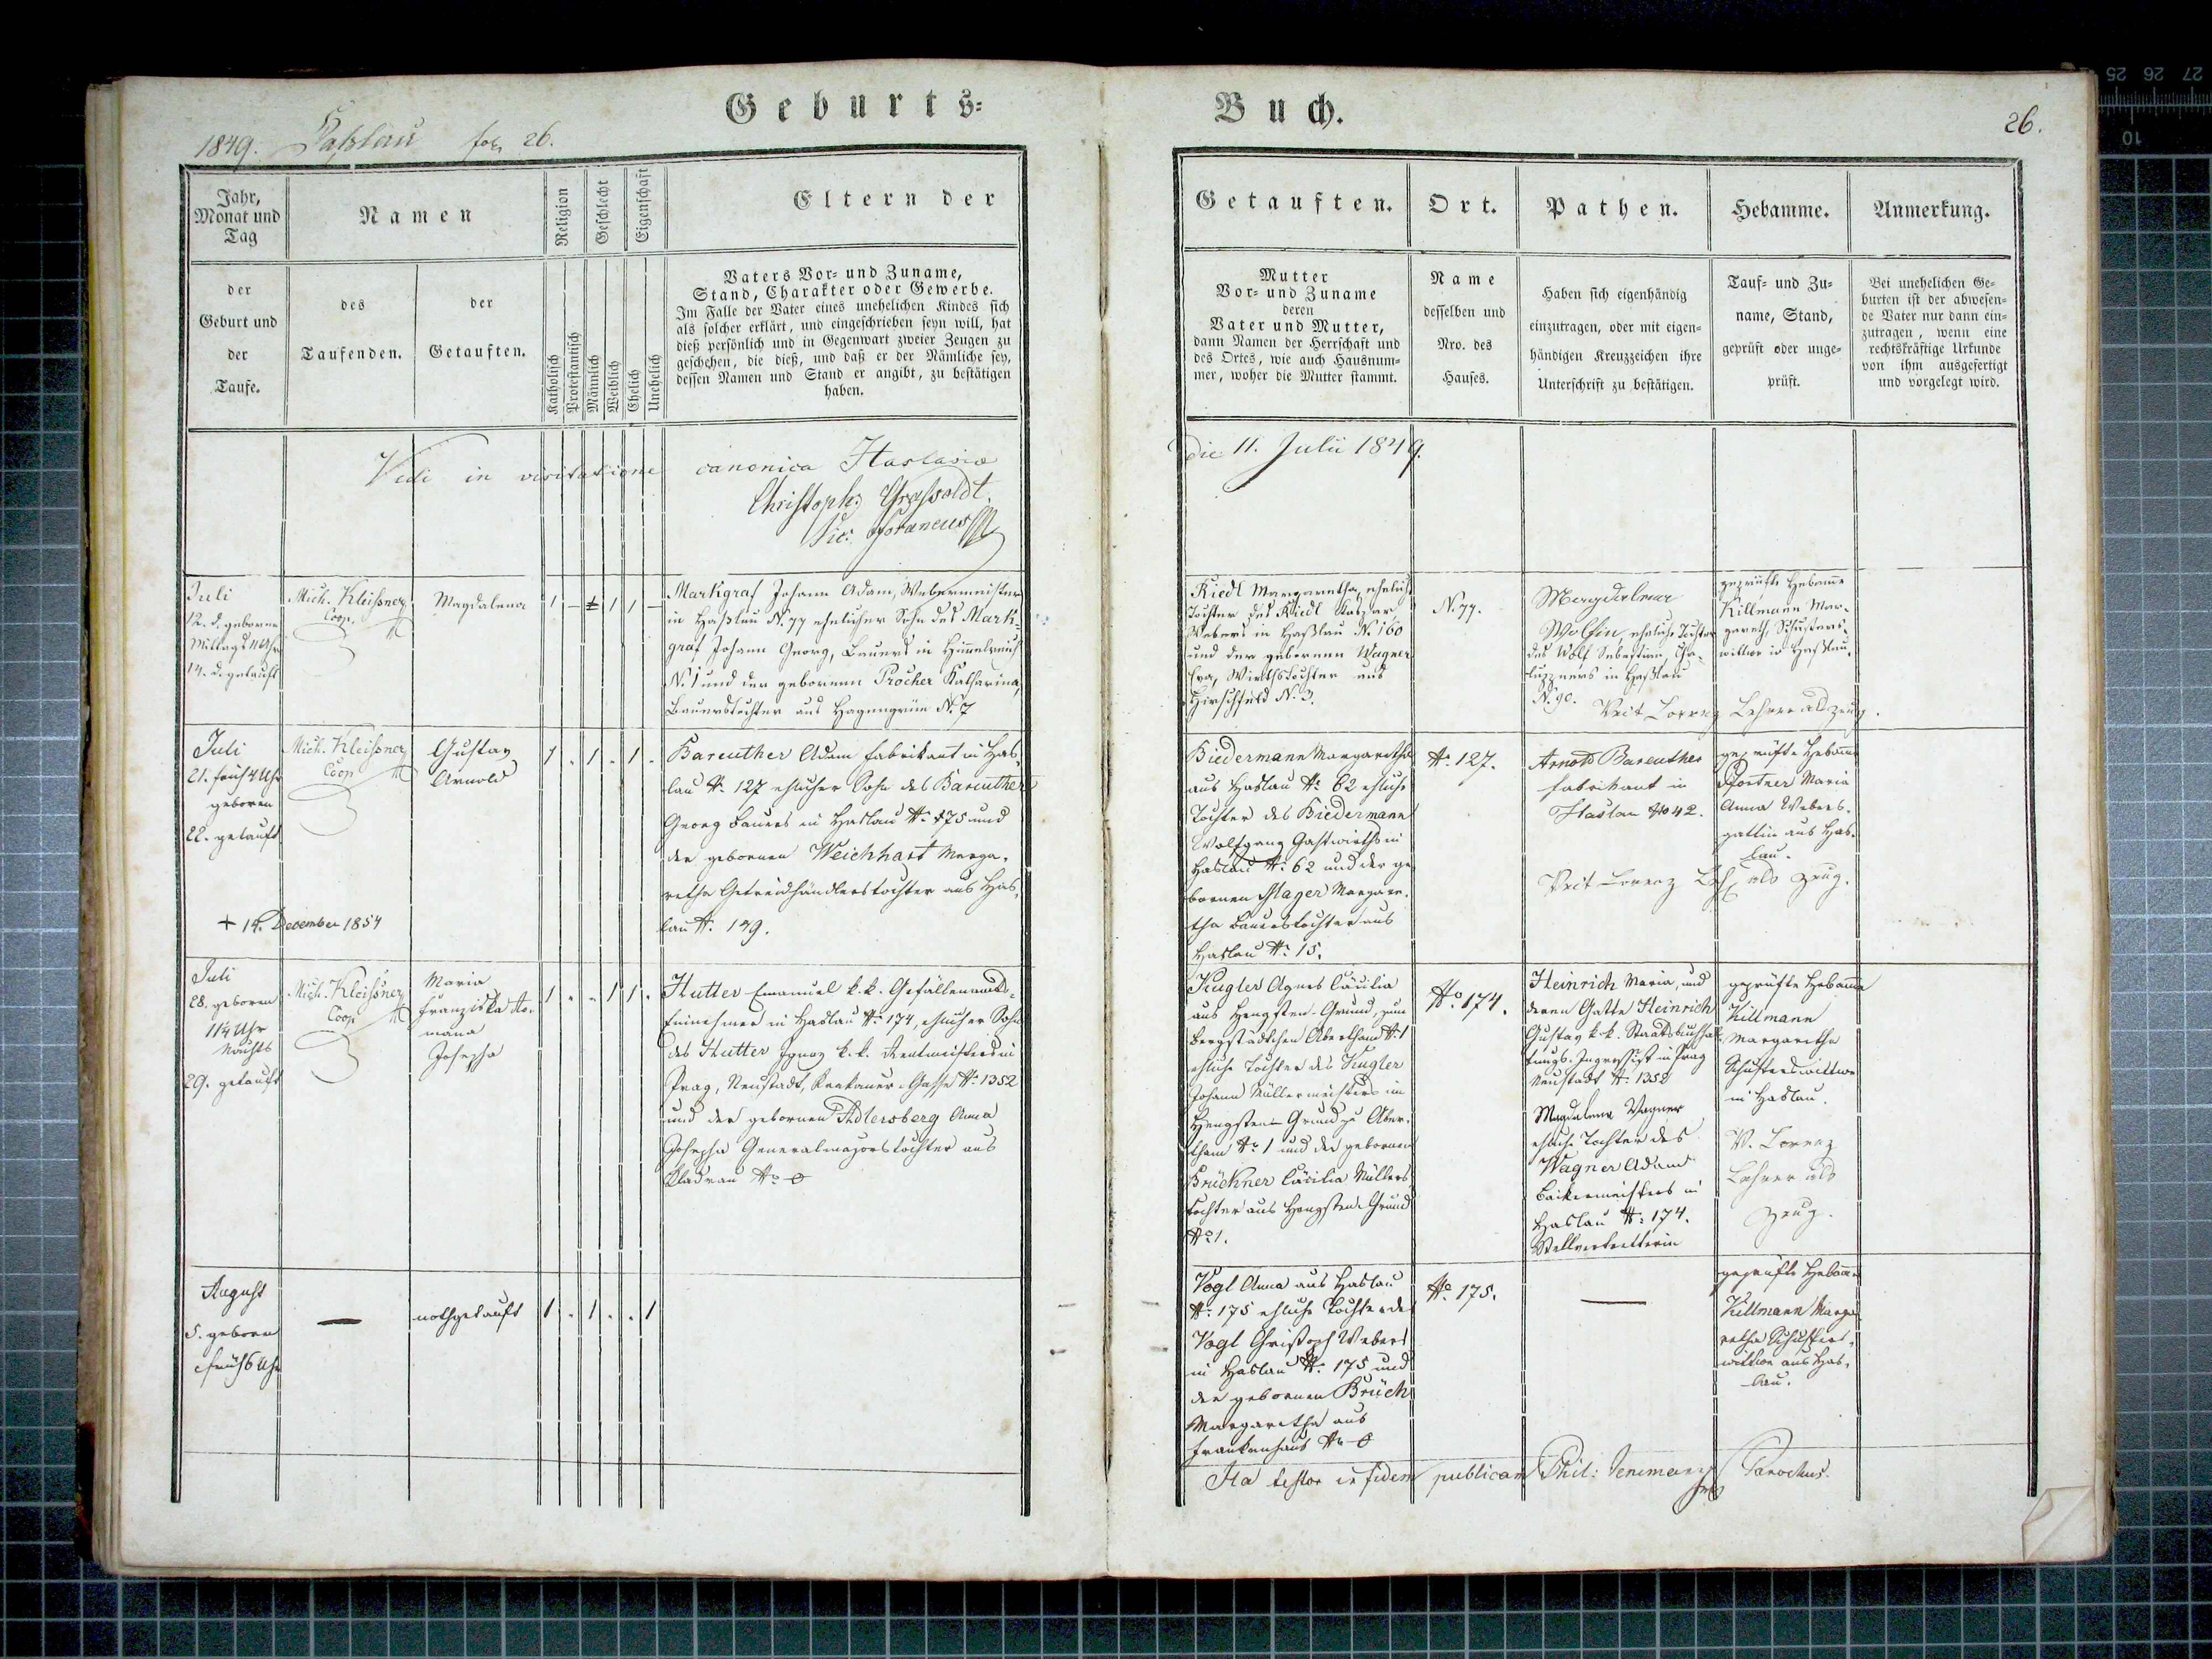 Geburts-
Buch.
1849. Haßlau fol. 26.
26.
Jahr,
Monat und
Tag
Namen
Religion
Geschlecht
Eigenschaft
Eltern der
Getauften.
Ort.
Pathen.
Hebamme.
Anmerkung.
der
Geburt und
der
Taufe.
des
Taufenden.
der
Getauften.
Katholisch
Protestantisch
Männlich
Weiblich
Ehelich
Unehelich
Vaters Vor- und Zuname,
Stand, Charakter oder Gewerbe.
Im Falle der Vater eines unehelichen Kindes sich
als solcher erklärt, und eingeschrieben seyn will, hat
dieß persönlich und in Gegenwart zweier Zeugen zu
geschehen, die dieß, und daß er der Nämliche sey,
dessen Namen und Stand er angibt, zu bestätigen
haben.
Mutter
Vor- und Zuname
deren
Vater und Mutter,
dann Namen der Herrschaft und
des Ortes, wie auch Hausnum-
mer, woher die Mutter stammt.
Name
desselben und
Nro. des
Hauses.
Haben sich eigenhändig
einzutragen, oder mit eigen-
händigen Kreuzzeichen ihre
Unterschrift zu bestätigen.
Tauf- und Zu-
name, Stand,
geprüft oder unge-
prüft.
Bei unehelichen Ge-
burten ist der abwesen-
de Vater nur dann ein-
zutragen, wenn eine
rechtskräftige Urkunde
von ihm ausgefertigt
und vorgelegt wird.
Vidi in visitatione canonica Haslaviae die 11. Julii 1849.
Christoph
Vic: foraneus
Juli
12. d. geboren
Mittags 11 Uhr
14. d. getauft
Mich. Kleißner
Coop.
Magdalena
1 - 1 1 -
Markgraf Johann Adam, Webermeister
in Haßlau N. 77 ehelicher Sohn des Mark-
graf Johann Georg, Bauers in Himmelreich
N. 1 und der gebornen Procher Katharina,
Bauerstochter aus Hagengrün N. 7
Riedl Margaretha, eheliche
Tochter des Riedl Kaspar
Webers in Haßlau N. 160
und der gebornen Wagner
Eva, Wirthstochter aus
Hirschfeld N. 3.
N. 77.
Magdalena
Wolfin, eheliche Tochter
des Wolf Sebastian
in Haßlau
N. 90.
Veit Lorenz Lehrer als Zeug.
geprüfte Hebamme
Killmann Mar-
gareth, Schusters-
wittwe in Haßlau.
Juli
21. früh 4 Uhr
geboren
22. getauft
+ 14. December 1854
Mich. Kleißner
Coop
Gustav
Arnold
1 . 1 . 1 .
Bareuther Adam Fabrikant in Has-
lau N. 127 ehelicher Sohn des Bareuther
Georg Bauers in Haslau N. 175 und
der gebornen Weichhart Marga-
retha Getreidhändlerstochter aus Has-
lau N. 149.
Biedermann Margaretha
aus Haslau N. 62 eheliche
Tochter des Biedermann
Wolfgang Gastwirths in
Haslau N. 62 und der ge-
bornen Mayer Margare-
tha Bauerstochter aus
Haslau N. 15.
N. 127.
Arnold Bareuther
Fabrikant in
Haslau No 42.
Veit Lorenz als Zeug.
geprüfte Hebamme
Portner Maria
Anna Webers-
gattin aus Has-
lau.
Juli
28. geboren
11¼ Uhr
Nachts
29. getauft
Mich. Kleißner
Coop
Maria
Franziska Ro-
mana
Josepha
1 . . 1 1 .
Hutter Emanuel k. k. Gefällenamts-
Einnehmer in Haslau N. 174, ehelicher Sohn
des Hutter Ignaz k. k. Rentmeisters in
Prag, Neustadt, Krakauer-Gasse N. 1352
und der gebornen Adlersberg Anna
Josepha Generalmajorstochter aus
Kladrau N. 0
Kugler Agnes Cäcilia
aus Hengsten-Grund, zum
Bergstädtchen Abertham N. 1
eheliche Tochter des Kugler
Johann Müllermeisters im
Hengsten-Grund zu Aber-
tham N. 1 und der gebornen
Brückner Cäcilia Müllers
tochter aus Hengsten-Grund
N. 1.
No. 174.
Heinrich Maria, und
deren Gatte Heinrich
Gustav k. k. Staatsbuchhal-
tungs-Ingrossist in Prag
Neustadt N. 1352
Magdalena Wagner
eheliche Tochter des
Wagner Adam
Bäckermeisters in
Haslau N. 174.
Stellvertretterin
geprüfte Hebamme
Killmann
Margaretha
Schusterswittwe
in Haslau.
V. Lorenz
Lehrer als
Zeug.
August
5. geboren
früh 6 Uhr
—
nothgetauft
1 . 1 . . 1
Vogl Anna aus Haslau
N. 175 eheliche Tochter des
Vogl Christoph Webers
in Haslau N. 175 und
der gebornen Brüch
Margaretha aus
Frankenhaus N. 0
No. 175.
—
geprüfte Hebamme
Killmann Marga-
retha Schusters-
wittwe aus Has-
lau.
Ita testor in fidem publicam Phil: Parochus.